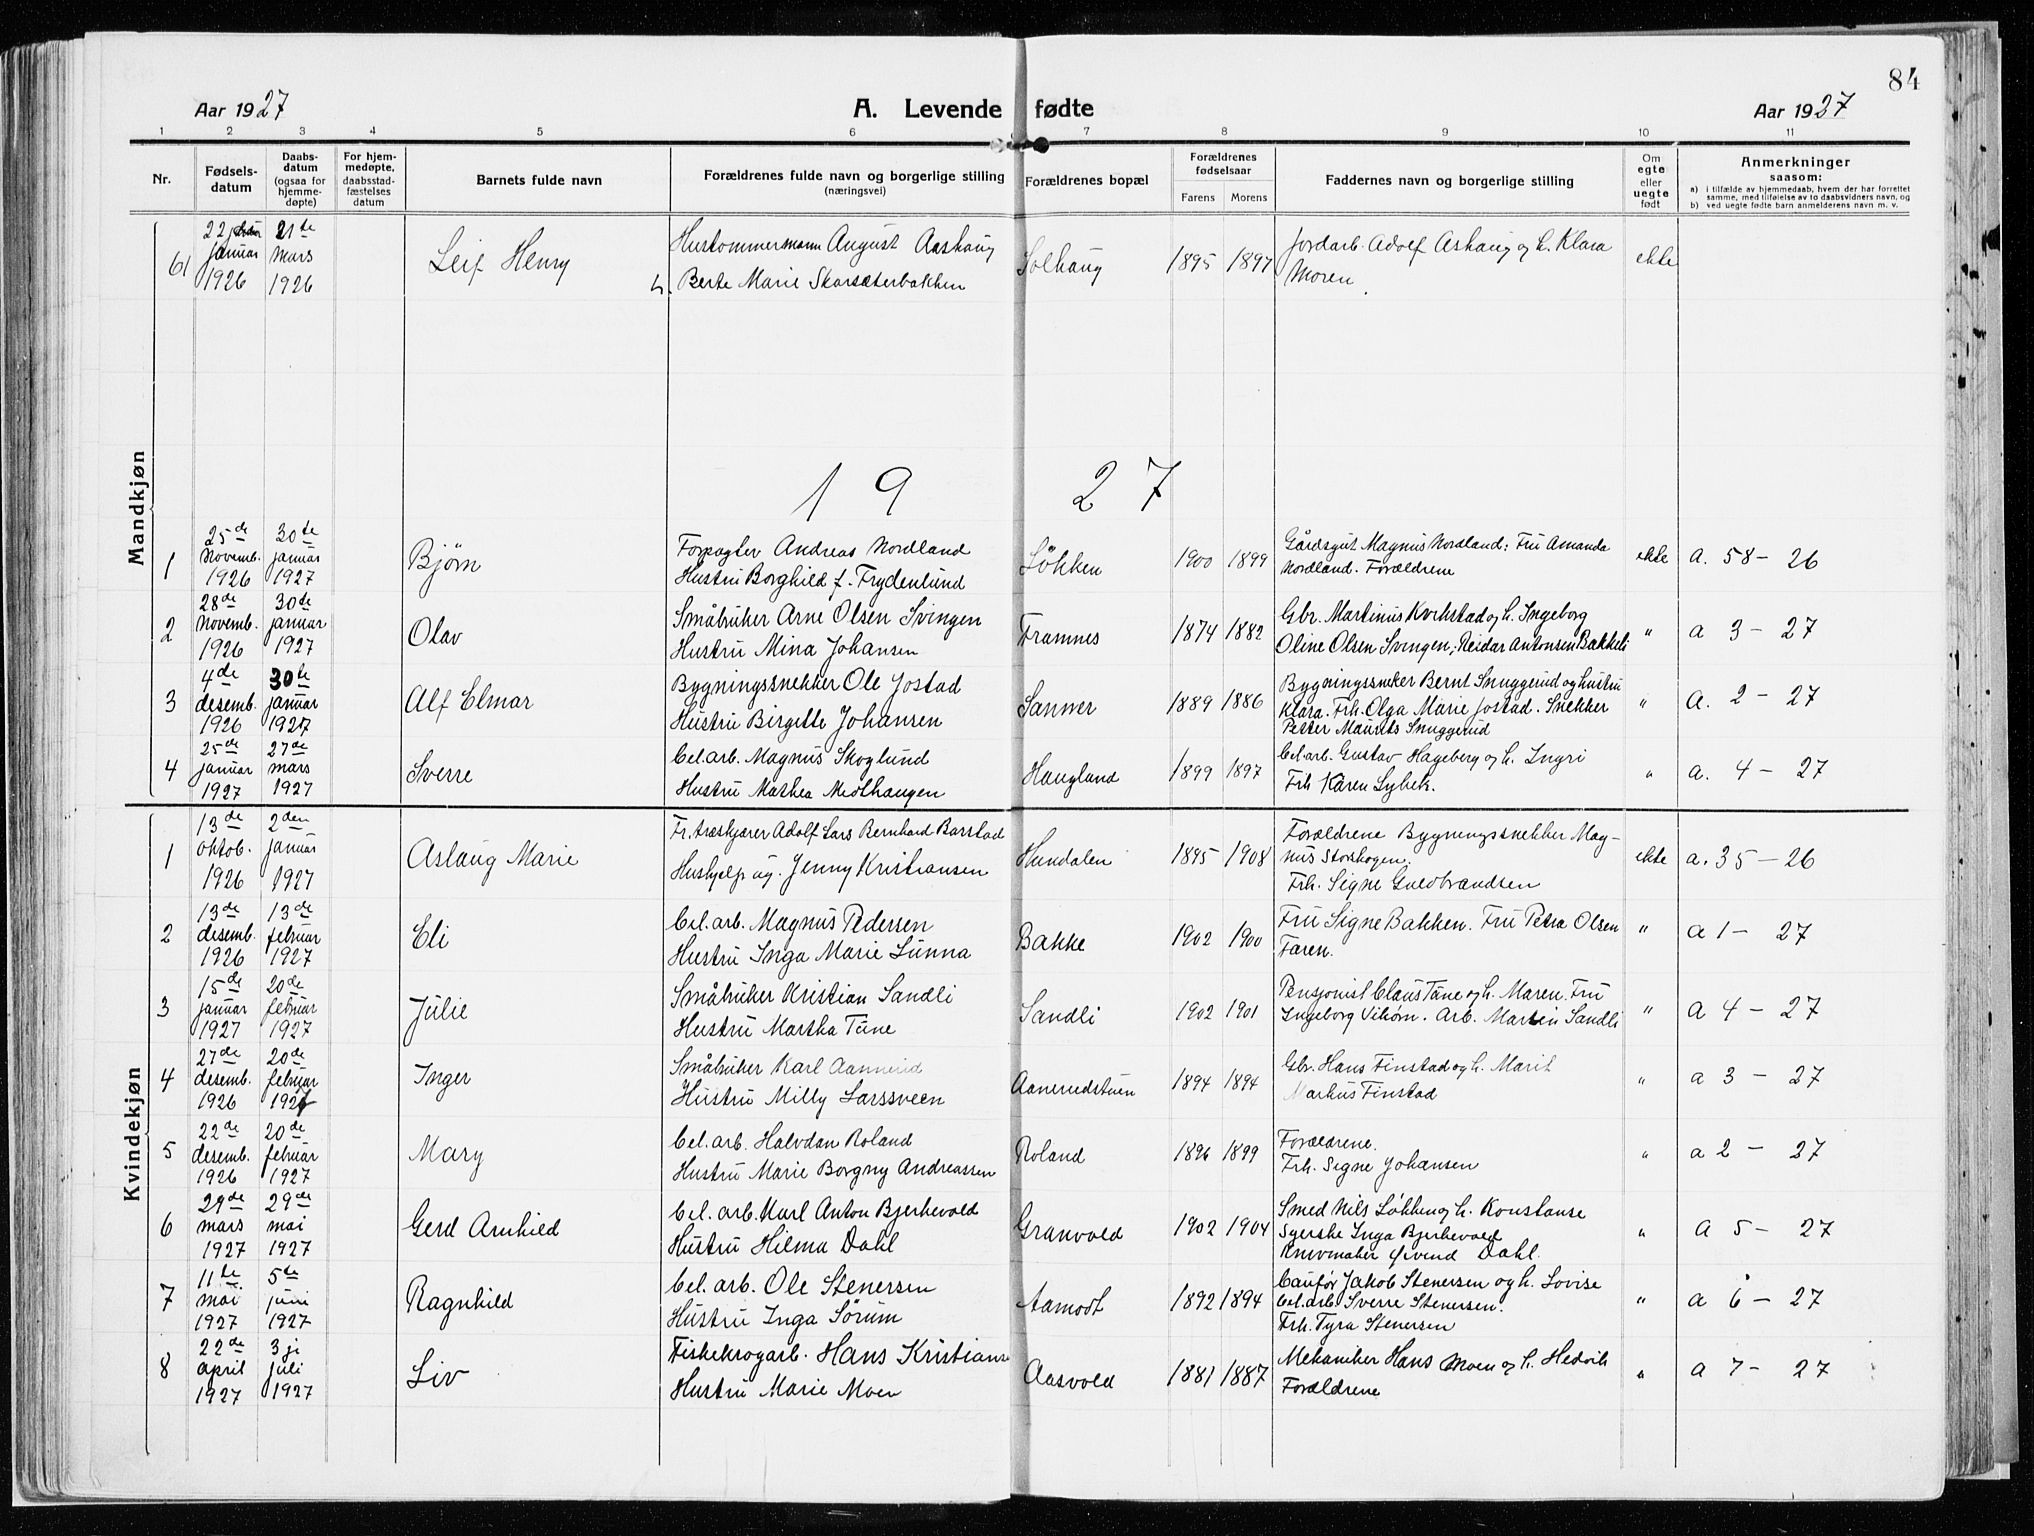 84
Aar 1927 A. Levende fødte Aar 1927
1 2 3 4 5 6 7 8 9 10 11
Nr. Fødsels-datum Daabs-datum (ogsaa for hjemme-døpte) For hjem-medøpte, daabsstad-fæstelses datum Barnets fulde navn Forældrenes fulde navn og borgerlige stilling (næringsvei) Forældrenes bopæl Forældrenes fødselsaar Farens Morens Faddernes navn og borgerlige stilling Om egte eller uegte født Anmerkninger saasom:
a) i tilfælde av hjemmedaab, hvem der har forrettet samme, med tilføielse av to daabsvidners navn, og
b) ved uegte fødte barn anmelderens navn m. v.
Mandkjøn
61 22 januar 1926 21te mars 1926 Leif Henry August Aashaug
h. Berte Marie Skarsæterbakken Solhaug 1895 1897 Jordarb. Adolf Ashaug og h. Klara
Moren. ekte
19 27
1 25de Novemb. 1926 30te januar 1927 Bjørn Forpagter Andreas Nordland
Hustru Borghild f. Frydenlund Løkken 1900 1899 Gårdsgut Magnus Nordland; Fru Amanda
Nordland. Forældrene ekte a. 58 - 26
2 28de Novemb. 1926 30te januar 1927 Olav Småbruker Arne Olsen Svingen
Hustru Mina Johansen Framnes 1874 1882 Gbr. Martinus Kvikstad og h. Ingeborg
Oline Olsen Svingen; Reidar Antonsen Bakkeli " a 3 - 27
3 4de desemb. 1926 30te januar 1927 Alf Elmar Bygningssnekker Ole Jostad
Hustru Birgitte Johansen Sanner 1889 1886 Bygningssneker Bernt Snuggerud og hustru
Klara. Frk. Olga Marie Jostad. Snekker
Petter Maurits Snuggerud " a. 2 - 27
4 25de januar 1927 27de mars 1927 Sverre Cel. arb. Magnus Skoglund
Hustru Mathea Midthaugen Haugland 1899 1897 Cel. arb. Gustav Hageberg og h. Ingri
Frk Karen Lybek. " a. 4 - 27
Kvindekjøn
1 13de oktob. 1926 2den januar 1927 Aslaug Marie Fr. træskjærer Adolf Lars Bernhard Barstad
Hushjelp ug. Jenny Kristiansen Hundalen 1895 1908 Forældrene Bygningssnekker Mag-
nus Storshogen.
Frk. Signe Guldbrandsen ekte a. 35 - 26
2 13de desemb. 1926 13de februar 1927 Eli Cel. arb. Magnus Pedersen
Hustru Inga Marie Lunna Bakke 1902 1900 Fru Signe Bakken. Fru Petra Olsen
Faren. " a 1 - 27
3 15de januar 1927 20de februar 1927 Julie Småbruker Kristian Sandli
Hustru Martha Tune Sandli 1902 1901 Pensjonist Claus Tune og h. Maren. Fru
Ingeborg Viken. Arb. Martin Sandli " a 4 - 27
4 27de desemb. 1926 20de februar 1927 Inger Småbruker Karl Aannerud
Hustru Milly Larssveen Aanerudstuen 1894 1894 Gbr. Hans Finstad og h. Marit
Markus Finstad " a 3 - 27
5 22de desemb. 1926 20de februar 1927 Mary Cel. arb. Halvdan Roland
Hustru Marie Borgny Andreassen Roland 1896 1899 Forældrene.
Frk. Signe Johansen " a 2 - 27
6 29de mars 1927 29de mai 1927 Gerd Arnhild Cel. arb. Karl Anton Bjerkevold
Hustru Hilma Dahl Granvold 1902 1904 Smed Nils Løkken og h. Konstanse
Syerske Inga Bjerkevold
Knivmaker Øivend Dahl. " a 5 - 27
7 11te mai 1927 5te juni 1927 Ragnhild Cel. arb. Ole Stenersen
Hustru Inga Sørum Aamodt 1892 1894 Jakob Stenersen og h. Lovise
Cel. arb. Sverre Stenersen.
Frk. Tyra Stenersen " a 6 - 27
8 22de april 1927 3je juli 1927 Liv Fiskekrogarb. Hans Kristians
Hustru Marie Moen Aasvold 1881 1887 Mekaniker Hans Moen og h. Hedvik
Forældrene " a 7 - 27